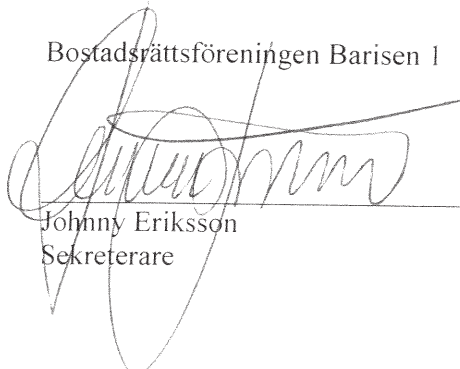 Bostadsrättsföreningen Barisen 1
Johnny Eriksson
Sekreterare